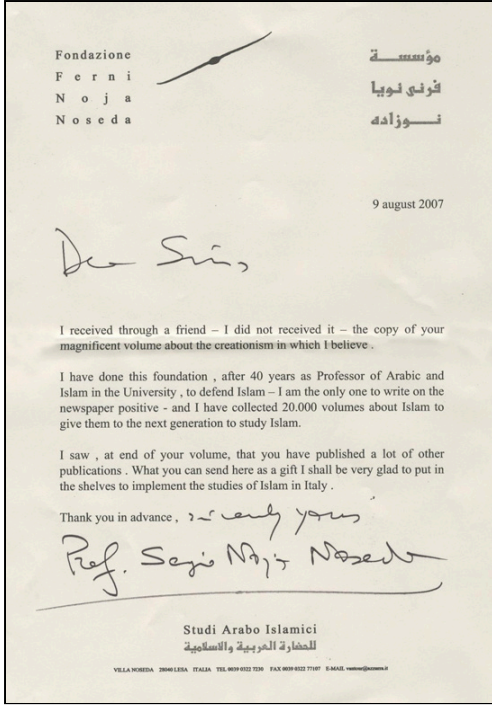 Fondazione
Ferni
Noja
Noseda
مؤسسة
فرنى نويا
نوزاده
9 august 2007
Dear Sirs,
I received through a friend – I did not received it – the copy of your
magnificent volume about the creationism in which I believe .
I have done this foundation , after 40 years as Professor of Arabic and
Islam in the University , to defend Islam – I am the only one to write on the
newspaper positive - and I have collected 20.000 volumes about Islam to
give them to the next generation to study Islam.
I saw , at end of your volume, that you have published a lot of other
publications . What you can send here as a gift I shall be very glad to put in
the shelves to implement the studies of Islam in Italy .
Thank you in advance , sincerely yours
Prof. Sergio Noja Noseda
Studi Arabo Islamici
للحضارة العربية والاسلامية
VILLA NOSEDA 28040 LESA ITALIA TEL 0039 0322 7230 FAX 0039 0322 77107 E-MAIL